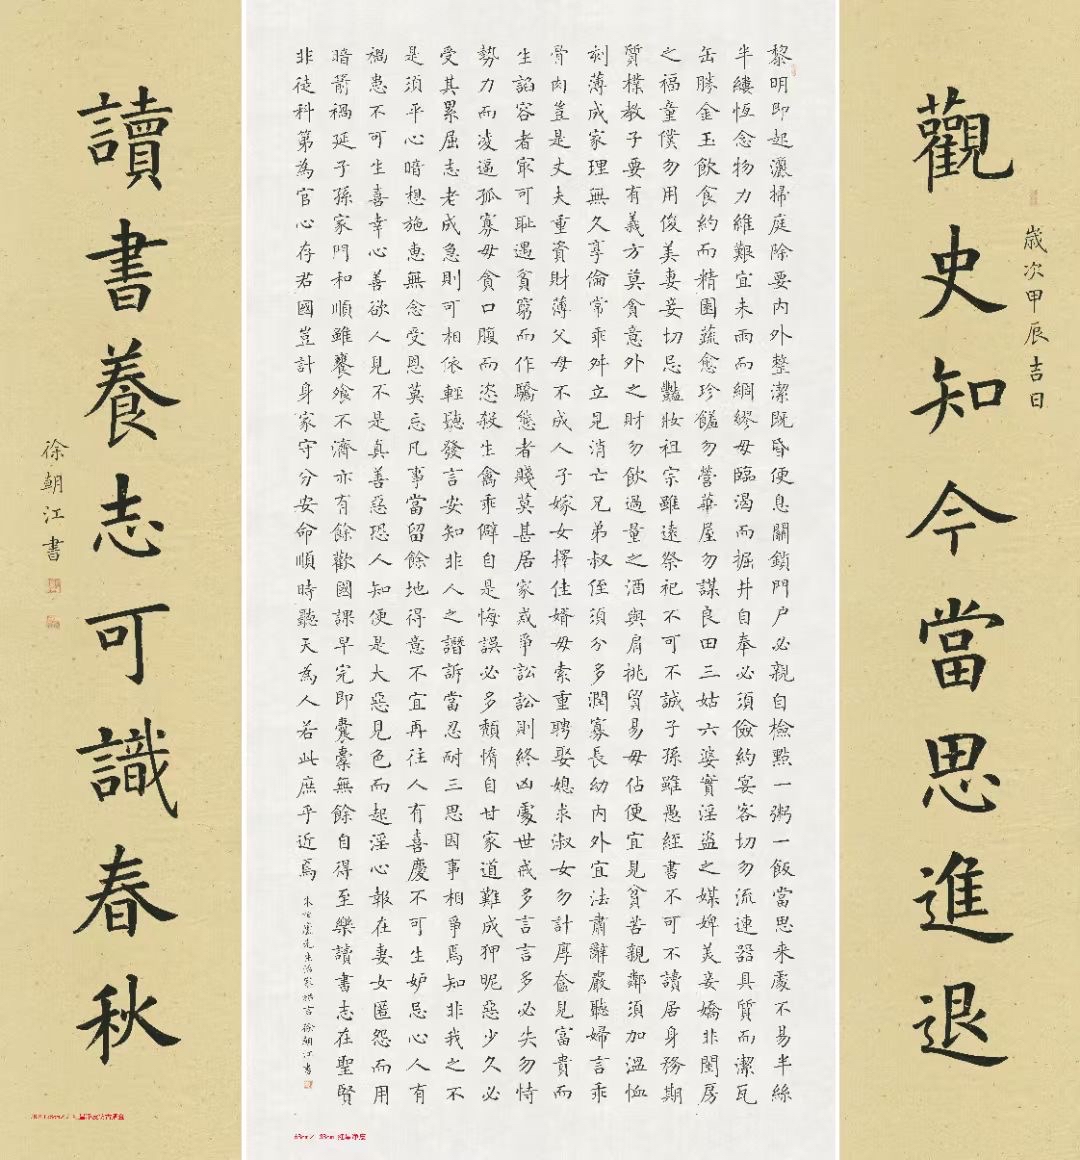 歲次甲辰吉日
觀史知今當思進退
黎明即起灑掃庭除要內外整潔既昏便息關鎖門戶必親自檢點一粥一飯當思来處不易半絲
半縷恆念物力維艱宜未雨而綢繆毋臨渴而掘井自奉必須儉約宴客切勿流連器具質而潔瓦
缶勝金玉飲食約而精園蔬愈珍饈勿營華屋勿謀良田三姑六婆實淫盜之媒婢美妾嬌非閨房
之福童僕勿用俊美妻妾切忌豔妝祖宗雖遠祭祀不可不誠子孫雖愚經書不可不讀居身務期
質樸教子要有義方莫貪意外之財勿飲過量之酒與肩挑貿易毋佔便宜見貧苦親鄰須加溫恤
刻薄成家理無久享倫常乖舛立見消亡兄弟叔侄須分多潤寡長幼內外宜法肅辭嚴聽婦言乖
骨肉豈是丈夫重資財薄父母不成人子嫁女擇佳婿毋索重聘娶媳求淑女勿計厚奩見富貴而
生諂容者最可恥遇貧窮而作驕態者賤莫甚居家戒爭訟訟則終凶處世戒多言言多必失勿恃
勢力而凌逼孤寡毋貪口腹而恣殺生禽乖僻自是悔誤必多頹惰自甘家道難成狎昵惡少久必
受其累屈志老成急則可相依輕聽發言安知非人之譖訴當忍耐三思因事相爭焉知非我之不
是須平心暗想施惠無念受恩莫忘凡事當留餘地得意不宜再往人有喜慶不可生妒忌心人有
禍患不可生喜幸心善欲人見不是真善惡恐人知便是大惡見色而起淫心報在妻女匿怨而用
暗箭禍延子孫家門和順雖饔飧不濟亦有餘歡國課早完即囊橐無餘自得至樂讀書志在聖賢
非徒科第為官心存君國豈計身家守分安命順時聽天為人若此庶乎近焉
朱伯廬先生治家格言徐朝江書
讀書養志可識春秋
徐朝江書